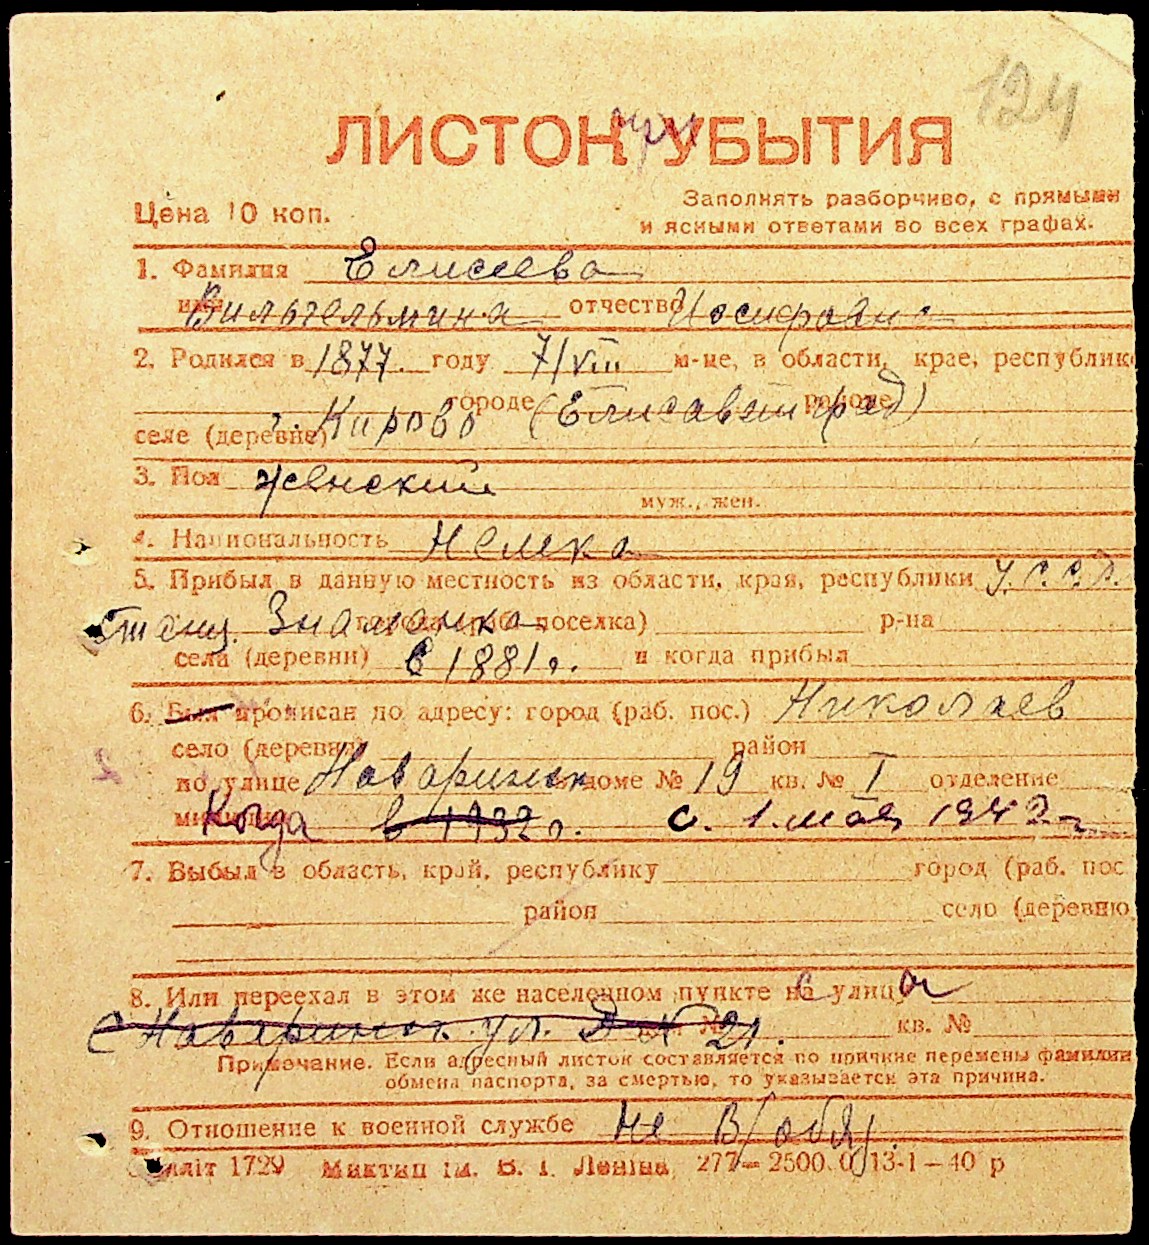 124
ЛИСТОК при УБЫТИЯ
Цена 10 коп.
Заполнять разборчиво, с прямыми
и ясными ответами во всех графах.
1. Фамилия Елисеева
имя Вильгельмина отчество Иосифовна
2. Родился в 1877. году 7/VIII м-це, в области, крае, республике
городе районе
селе (деревне) г. Кирово (Елисаветград)
3. Пол женский
муж., жен.
4. Национальность Немка
5. Прибыл в данную местность из области, края, республики У.С.С.Р.
Станц. Знаменка города (раб. поселка) р-на
села (деревни) в 1881 г. и когда прибыл
6. Был прописан по адресу: город (раб. пос.) Николаев
село (деревня) район
по улице Наваринск доме № 19 кв. № I отделение
милиции Когда в 1932 г. с. 1. мая 1942 г.
7. Выбыл в область, край, республику город (раб. пос
район село (деревню
8. Или переехал в этом же населенном пункте на с улицу а
с Наваринск. ул. Д № 21. кв. №
Примечание. Если адресный листок составляется по причине перемены фамилии
обмена паспорта, за смертью, то указывается эта причина.
9. Отношение к военной службе не в/обяз.
1729 Миктип ім. В. І. Леніна, 277—2500.0 13-1—40 р